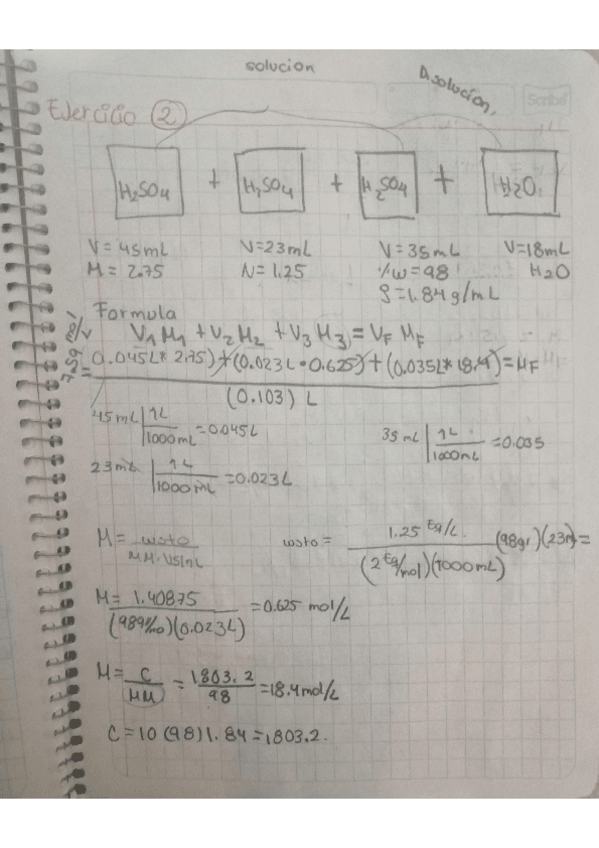 solucion
Disolución,
Scribe
Ejercicio 2
H₂SO₄ + H₂SO₄ + H₂SO₄ + H₂O
V = 45mL V=23mL V = 35mL V=18mL
M = 2.75 N=1.25 %w=98 H₂O
ρ=1.84 g/mL
Formula
V₁M₁ + V₂M₂ + V₃M₃ = VF MF
0.045L* 2.75)+(0.023L•0.625)+(0.035L* 18.4)=MF
(0.103) L
45mL | 1L / 1000mL =0.045L
35 mL | 1L / 1000mL =0.035
23mL | 1L / 1000mL =0.023L
M = wsto / MM·Vsln L
wsto = 1.25 Eq/L / (2 Eq/mol)(1000mL) (98gr)(23m)=
M= 1.40875 / (98g/mo)(0.023L) =0.625 mol/L
M= C / MM = 1803.2 / 98 =18.4mol/L
C=10 (98)1.84=1803.2.